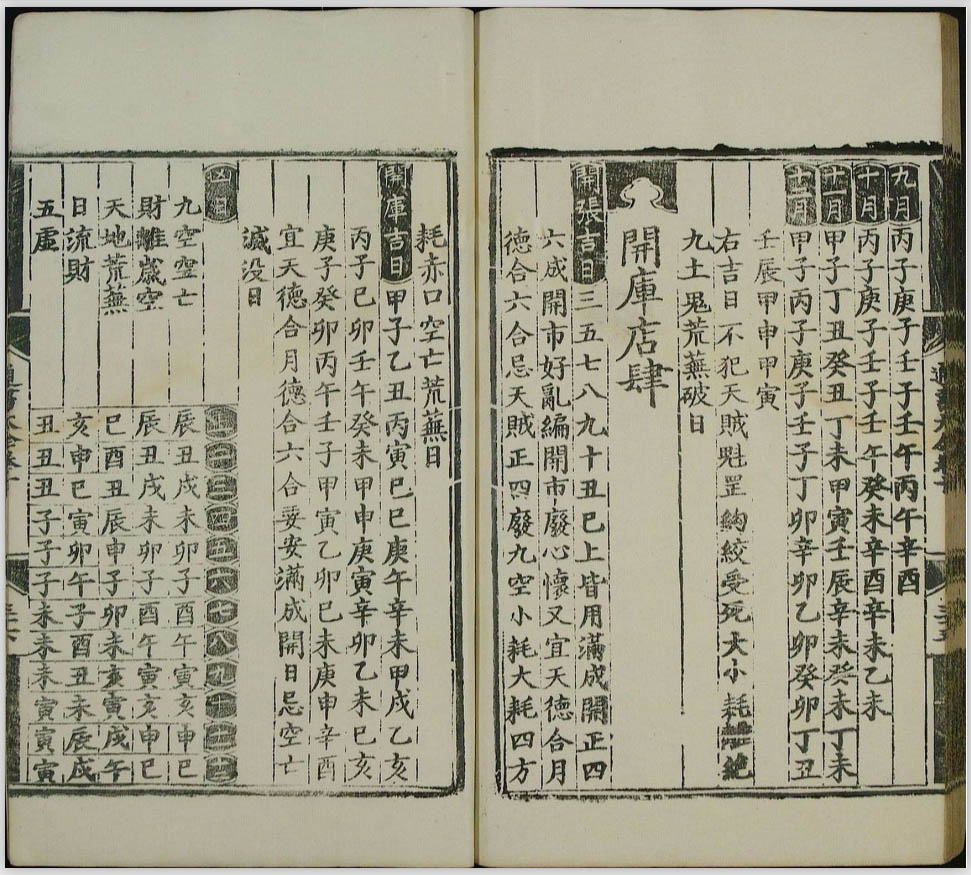 九月 丙子庚子壬子壬午丙午辛酉
十月 丙子庚子壬子壬午癸未辛酉辛未乙未
十一月 甲子丁丑癸丑丁未甲寅壬辰辛未癸未丁未
十二月 甲子丙子庚子壬子丁卯辛卯乙卯癸卯丁丑
壬辰甲申甲寅
右吉日不犯天賊魁罡鈎絞受死大小耗絕
九土鬼荒蕪破日
開庫店肆
開張吉日 三五七八九十丑巳上皆用滿成開正四
六成開市好亂編開市廢心懷又宜天德合月
德合六合忌天賊正四廢九空小耗大耗四方
耗赤口空亡荒蕪日
開庫吉日 甲子乙丑丙寅巳巳庚午辛未甲戌乙亥
丙子巳卯壬午癸未甲申庚寅辛卯乙未巳亥
庚子癸卯丙午壬子甲寅乙卯巳未庚申辛酉
宜天德合月德合六合要安滿成開日忌空亡
滅没日
凶日 正二三四五六七八九十十一十二
九空空亡 辰丑戌未卯子酉午寅亥申巳
財離歲空 辰丑戌未卯子酉午寅亥申巳
天地荒蕪 巳酉丑辰申子卯未亥寅戌午
日流財 亥申巳寅卯午子酉丑未辰戌
五虛 丑丑丑子子子未未未寅寅寅